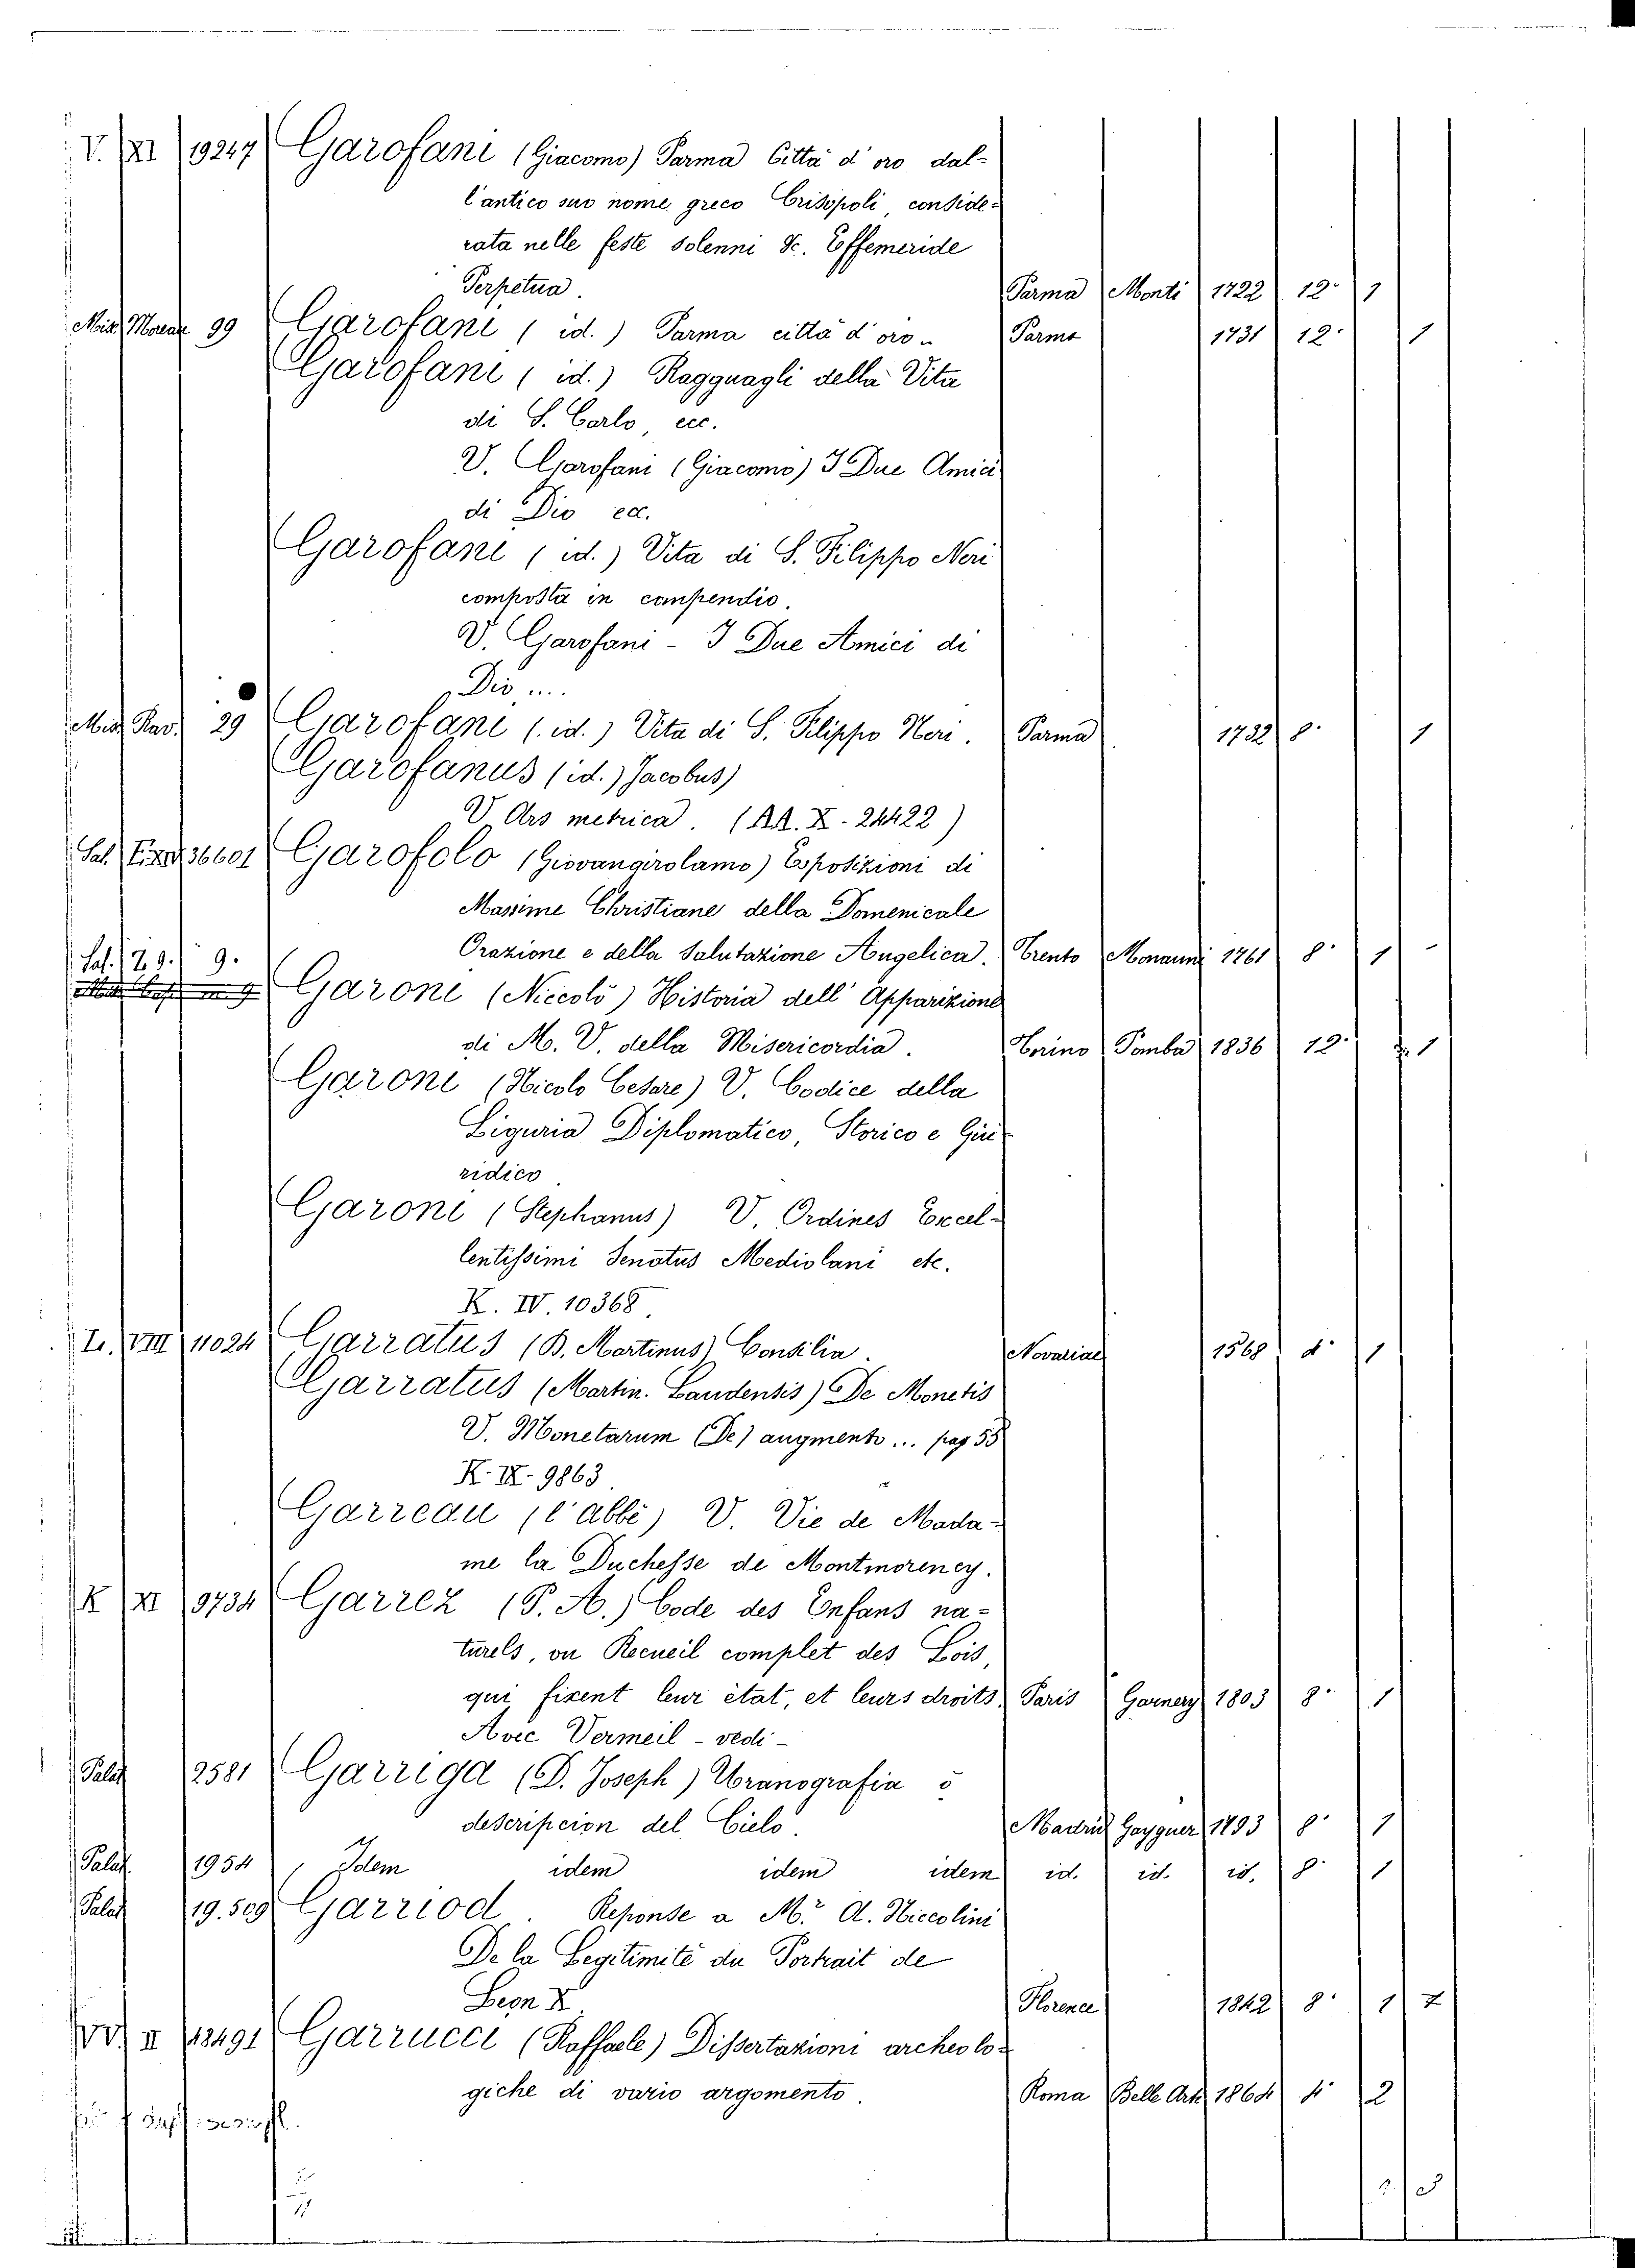 V. XI 19247 Garofani (Giacomo) Parma Città d'oro dal-
l'antico suo nome greco Crisopoli, conside-
rata nelle feste solenni &c. Effemeride
Perpetua. Parma Monti 1722 12° 1
Misc. 99 Garofani (id.) Parma città d'oro.. Parma 1731 12° 1
Garofani (id.) Ragguagli della Vita
di S. Carlo, ecc.
V. Garofani (Giacomo) I Due Amici
di Dio ecc.
Garofani (id.) Vita di S. Filippo Neri
composta in conpendio.
V. Garofani - I Due Amici di
Dio ....
Misc. 29 Garofani (id.) Vita di S. Filippo Neri. Parma 1732 8° 1
Garofanus (id.) Jacobus)
V Ars metrica. (AA. X. 24422)
36601 Garofolo (Giovangirolamo) Esposizioni di
Massime Christiane della Domenicale
Orazione e della Salutazione Angelica. Trento Monauni 1761 8° 1 -
9. Garoni (Niccolò) Historia dell' Apparizione
di M. V. della Misericordia. Torino Pomba 1836 12° 1
Garoni (Nicolo Cesare) V. Codice della
Liguria Diplomatico, Storico e Giu-
ridico
Garoni (Stephanus) V. Ordines Excel-
lentissimi Senatus Mediolani etc.
K. IV. 10368.
VIII 11024 Garratus (B. Martinus) Consilia. Novariae 1568 4° 1
Garratus (Martin. Laudensis) De Monetis
V. Monetarum (De) augmento... pag 55
K. IX. 9863.
Garreau (l'abbé) V. Vie de Mada-
me la Duchesse de Montmorency.
K XI 9734 Garrez (P. A.) Code des Enfans na-
turels, ou Recueil complet des Lois,
qui fixent leur état, et leurs droits. Paris Garnery 1803 8° 1
Avec Vermeil - vedi -
Palat 12581 Garriga (D. Joseph) Uranografia ò
descripcion del Cielo. Madrid 1793 8° 1
Palat. 1954 Idem idem idem idem id. id. id. 8° 1
Palat 19.509 Garriod. Reponse a Mr. A. Niccolini
De la Legitimité du Portrait de
Leon X. Florence 1842 8° 1
II 13491 Garrucci (Raffaele) Dissertazioni archeolo-
giche di vario argomento. Roma Belle Arti 1864 4° 2